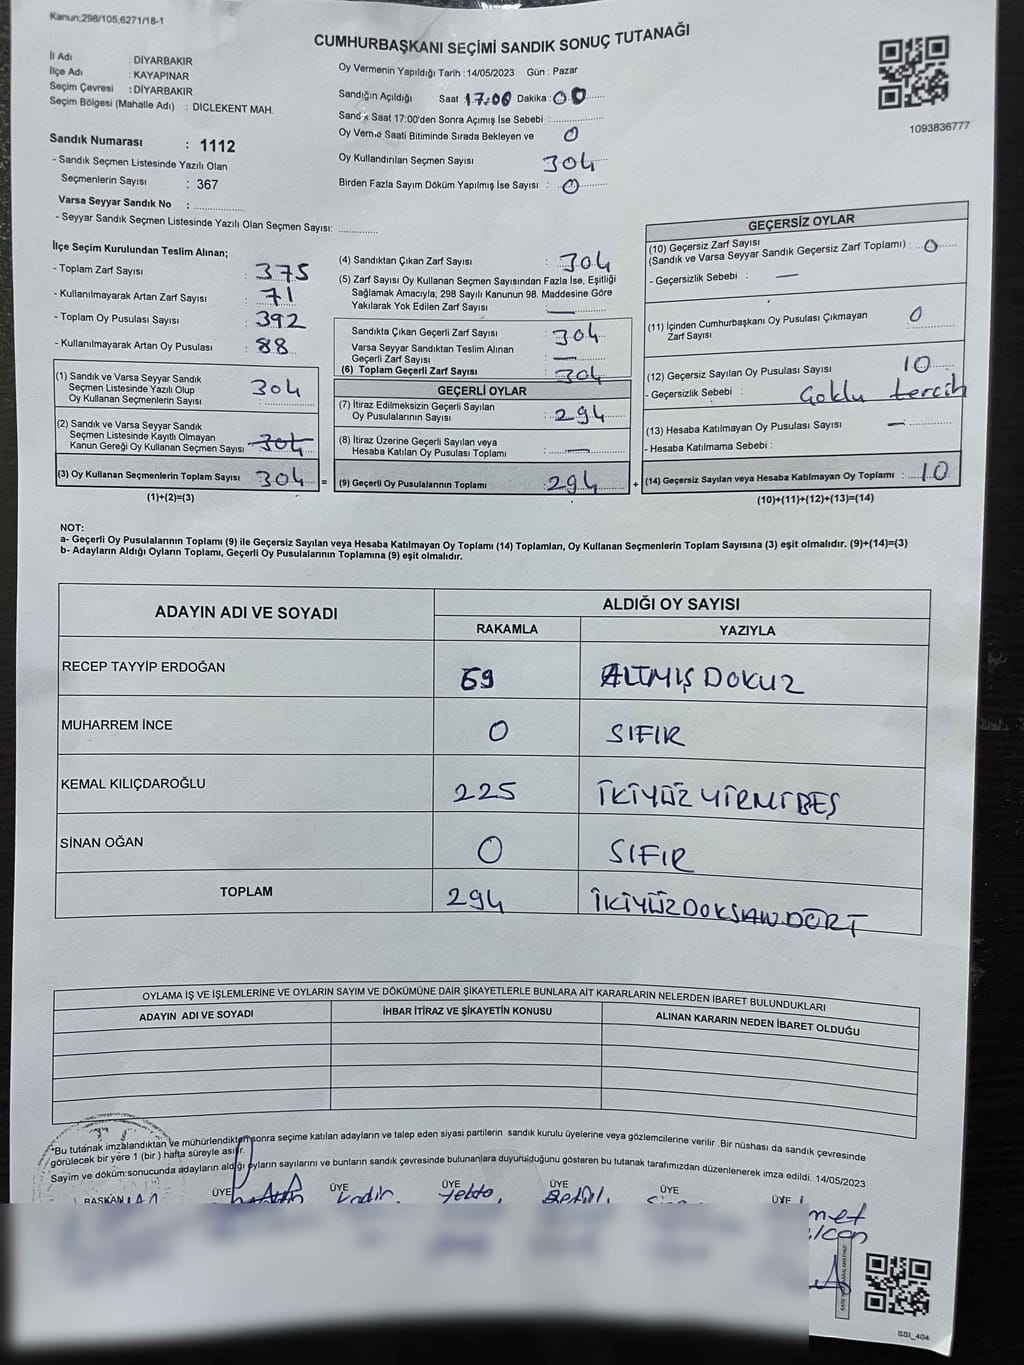 Kanun;298/105,6271/18-1
CUMHURBAŞKANI SEÇİMİ SANDIK SONUÇ TUTANAĞI
İl Adı : DİYARBAKIR
İlçe Adı : KAYAPINAR
Seçim Çevresi : DİYARBAKIR
Seçim Bölgesi (Mahalle Adı) : DİCLEKENT MAH.
Oy Vermenin Yapıldığı Tarih : 14/05/2023 Gün : Pazar
Sandığın Açıldığı Saat 17:00 Dakika : 00
Sandık Saat 17:00'den Sonra Açımış İse Sebebi :
Oy Verme Saati Bitiminde Sırada Bekleyen ve 0
Oy Kullandırılan Seçmen Sayısı 304
Birden Fazla Sayım Döküm Yapılmış İse Sayısı : 0
1093836777
Sandık Numarası : 1112
- Sandık Seçmen Listesinde Yazılı Olan
Seçmenlerin Sayısı : 367
Varsa Seyyar Sandık No :
- Seyyar Sandık Seçmen Listesinde Yazılı Olan Seçmen Sayısı:
İlçe Seçim Kurulundan Teslim Alınan;
- Toplam Zarf Sayısı : 375
- Kullanılmayarak Artan Zarf Sayısı : 71
- Toplam Oy Pusulası Sayısı : 392
- Kullanılmayarak Artan Oy Pusulası : 88
(1) Sandık ve Varsa Seyyar Sandık
Seçmen Listesinde Yazılı Olup
Oy Kullanan Seçmenlerin Sayısı : 304
(2) Sandık ve Varsa Seyyar Sandık
Seçmen Listesinde Kayıtlı Olmayan
Kanun Gereği Oy Kullanan Seçmen Sayısı 304
(3) Oy Kullanan Seçmenlerin Toplam Sayısı 304 =
(1)+(2)=(3)
(4) Sandıktan Çıkan Zarf Sayısı : 304
(5) Zarf Sayısı Oy Kullanan Seçmen Sayısından Fazla İse, Eşitliği
Sağlamak Amacıyla; 298 Sayılı Kanunun 98. Maddesine Göre
Yakılarak Yok Edilen Zarf Sayısı : —
Sandıkta Çıkan Geçerli Zarf Sayısı : 304
Varsa Seyyar Sandıktan Teslim Alınan
Geçerli Zarf Sayısı : —
(6) Toplam Geçerli Zarf Sayısı : 304
GEÇERLİ OYLAR
(7) İtiraz Edilmeksizin Geçerli Sayılan
Oy Pusulalarının Sayısı : 294
(8) İtiraz Üzerine Geçerli Sayılan veya
Hesaba Katılan Oy Pusulası Toplamı : —
(9) Geçerli Oy Pusulalarının Toplamı : 294 +
GEÇERSİZ OYLAR
(10) Geçersiz Zarf Sayısı
(Sandık ve Varsa Seyyar Sandık Geçersiz Zarf Toplamı) : 0
- Geçersizlik Sebebi : —
(11) İçinden Cumhurbaşkanı Oy Pusulası Çıkmayan
Zarf Sayısı : 0
(12) Geçersiz Sayılan Oy Pusulası Sayısı : 10
- Geçersizlik Sebebi : Çoklu tercih
(13) Hesaba Katılmayan Oy Pusulası Sayısı : —
- Hesaba Katılmama Sebebi :
(14) Geçersiz Sayılan veya Hesaba Katılmayan Oy Toplamı : 10
(10)+(11)+(12)+(13)=(14)
NOT:
a- Geçerli Oy Pusulalarının Toplamı (9) ile Geçersiz Sayılan veya Hesaba Katılmayan Oy Toplamı (14) Toplamları, Oy Kullanan Seçmenlerin Toplam Sayısına (3) eşit olmalıdır. (9)+(14)=(3)
b- Adayların Aldığı Oyların Toplamı, Geçerli Oy Pusulalarının Toplamına (9) eşit olmalıdır.
ADAYIN ADI VE SOYADI
ALDIĞI OY SAYISI
RAKAMLA YAZIYLA
RECEP TAYYİP ERDOĞAN 69 ALTMIŞ DOKUZ
MUHARREM İNCE 0 SIFIR
KEMAL KILIÇDAROĞLU 225 İKİYÜZ YİRMİBEŞ
SİNAN OĞAN 0 SIFIR
TOPLAM 294 İKİYÜZDOKSANDÖRT
OYLAMA İŞ VE İŞLEMLERİNE VE OYLARIN SAYIM VE DÖKÜMÜNE DAİR ŞİKAYETLERLE BUNLARA AİT KARARLARIN NELERDEN İBARET BULUNDUKLARI
ADAYIN ADI VE SOYADI İHBAR İTİRAZ VE ŞİKAYETİN KONUSU ALINAN KARARIN NEDEN İBARET OLDUĞU
*Bu tutanak imzalandıktan ve mühürlendikten sonra seçime katılan adayların ve talep eden siyasi partilerin sandık kurulu üyelerine veya gözlemcilerine verilir .Bir nüshası da sandık çevresinde
görülecek bir yere 1 (bir ) hafta süreyle asılır.
Sayım ve döküm sonucunda adayların aldığı oyların sayılarını ve bunların sandık çevresinde bulunanlara duyurulduğunu gösteren bu tutanak tarafımızdan düzenlenerek imza edildi. 14/05/2023
BAŞKAN ÜYE ÜYE ÜYE ÜYE ÜYE ÜYE
Kadir Betül
SSI_404